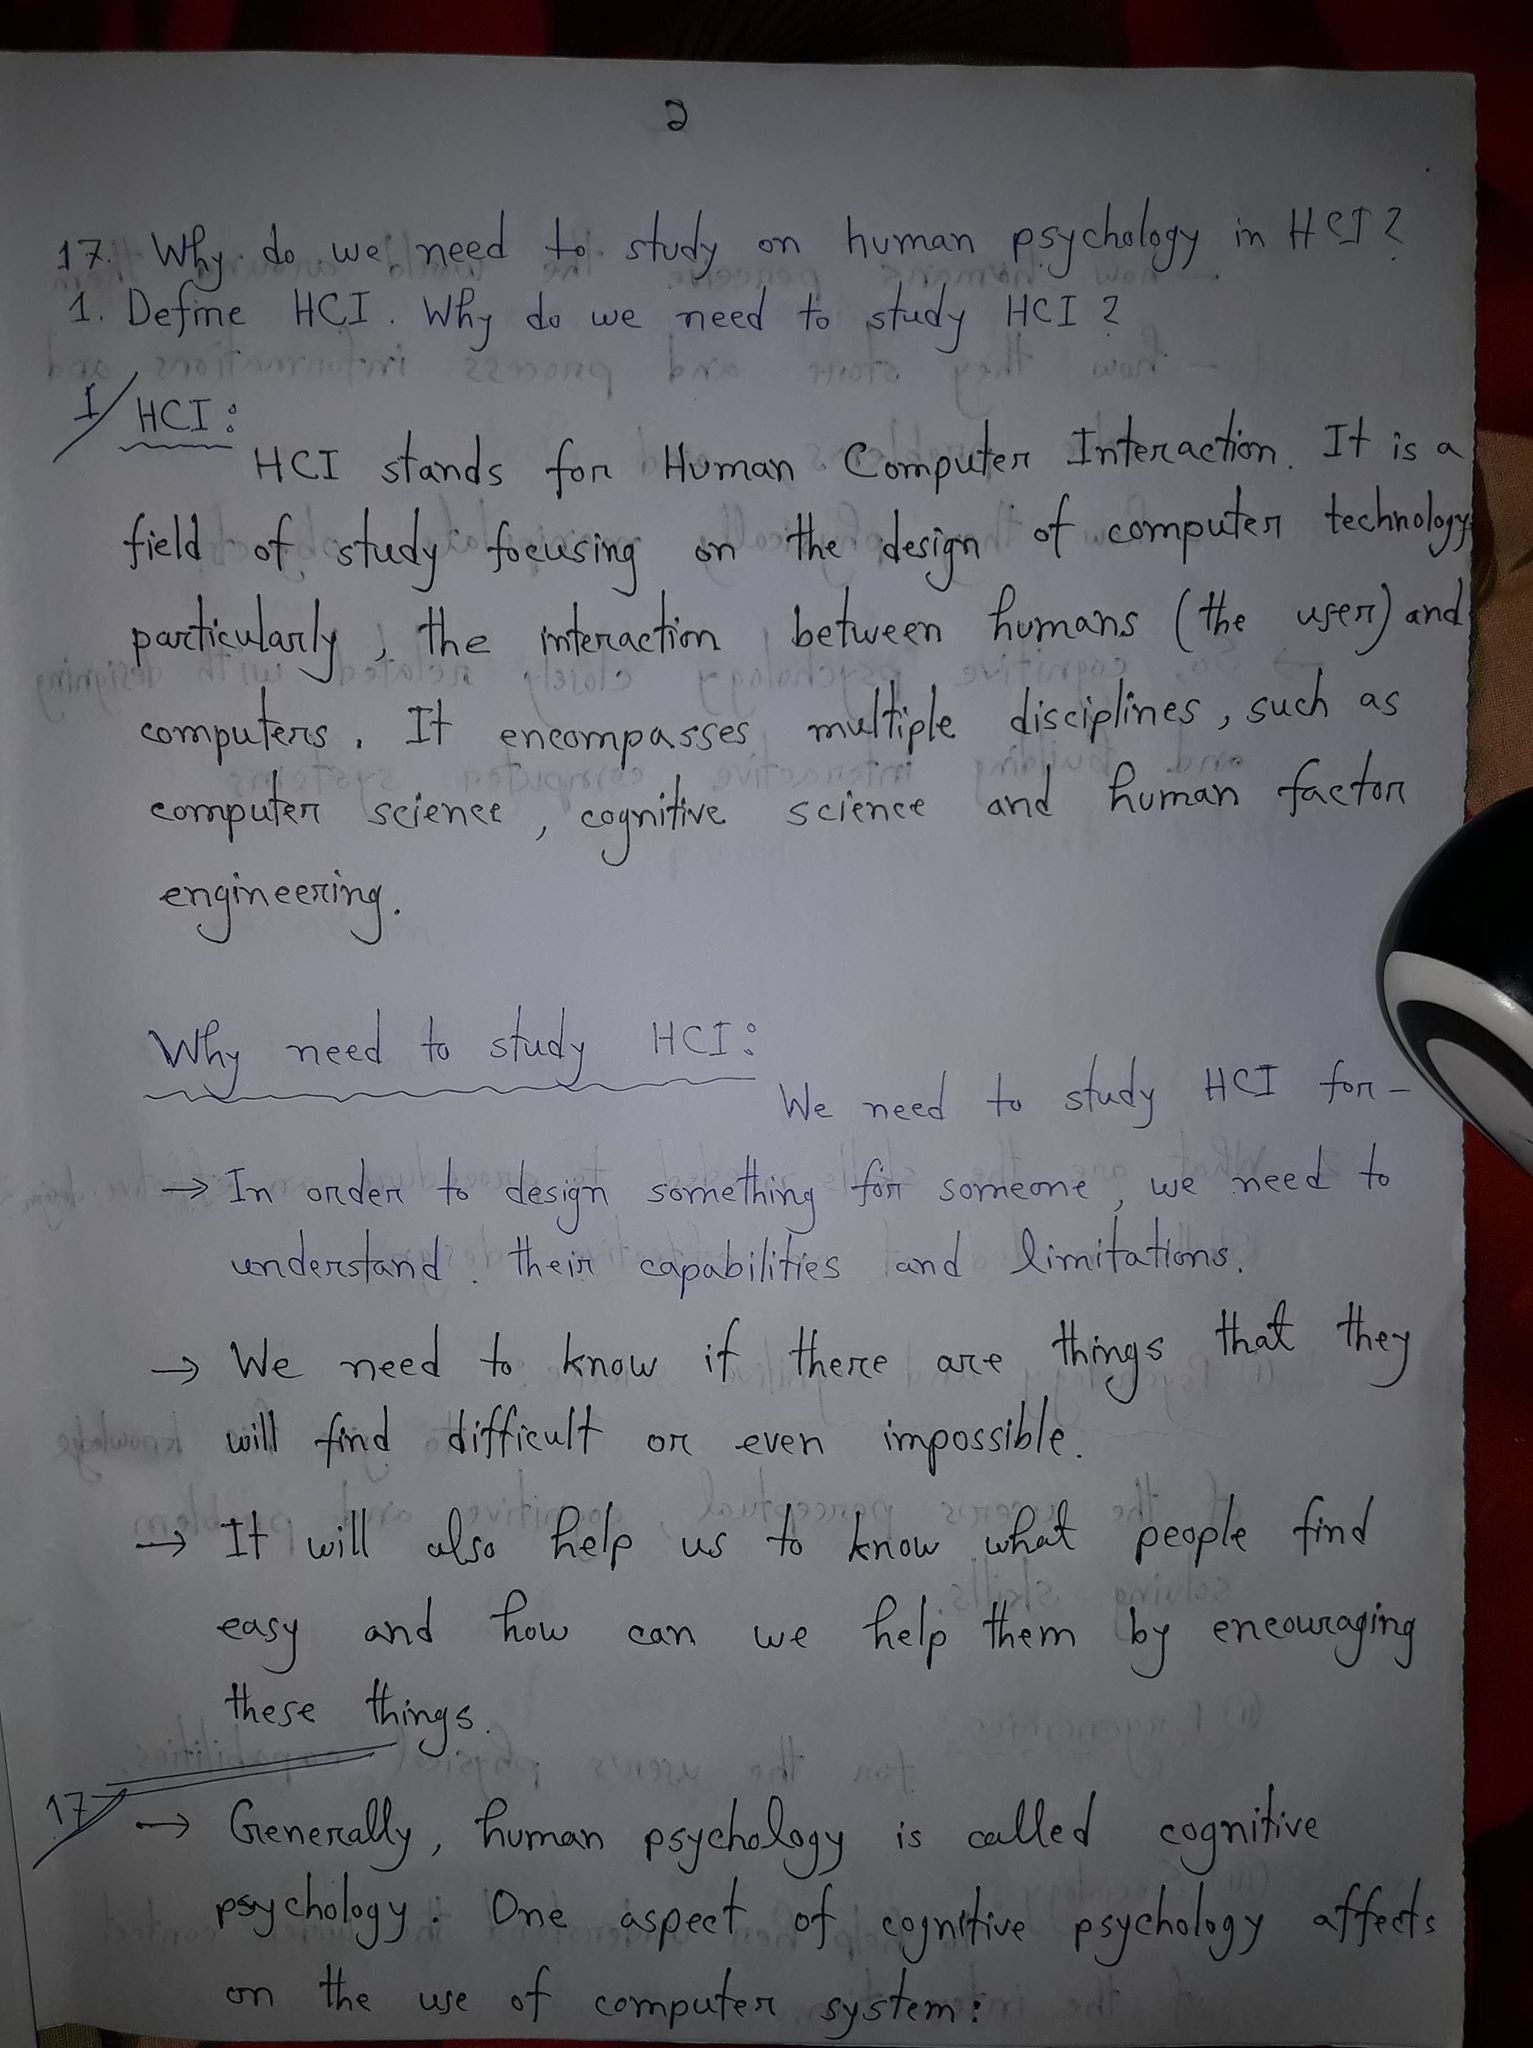 2
17. Why do we need to study on human psychology in HCI?
1. Define HCI. Why do we need to study HCI?
1/ HCI:
HCI stands for Human Computer Interaction. It is a
field of study focusing on the design of computer technology
particularly, the interaction between humans (the user) and
computers. It encompasses multiple disciplines, such as
computer science, cognitive science and human factor
engineering.
Why need to study HCI:
We need to study HCI for-
→ In order to design something for someone, we need to
understand their capabilities and limitations.
→ We need to know if there are things that they
will find difficult or even impossible.
→ It will also help us to know what people find
easy and how can we help them by encouraging
these things.
17/ → Generally, human psychology is called cognitive
psychology. One aspect of cognitive psychology affects
on the use of computer system: